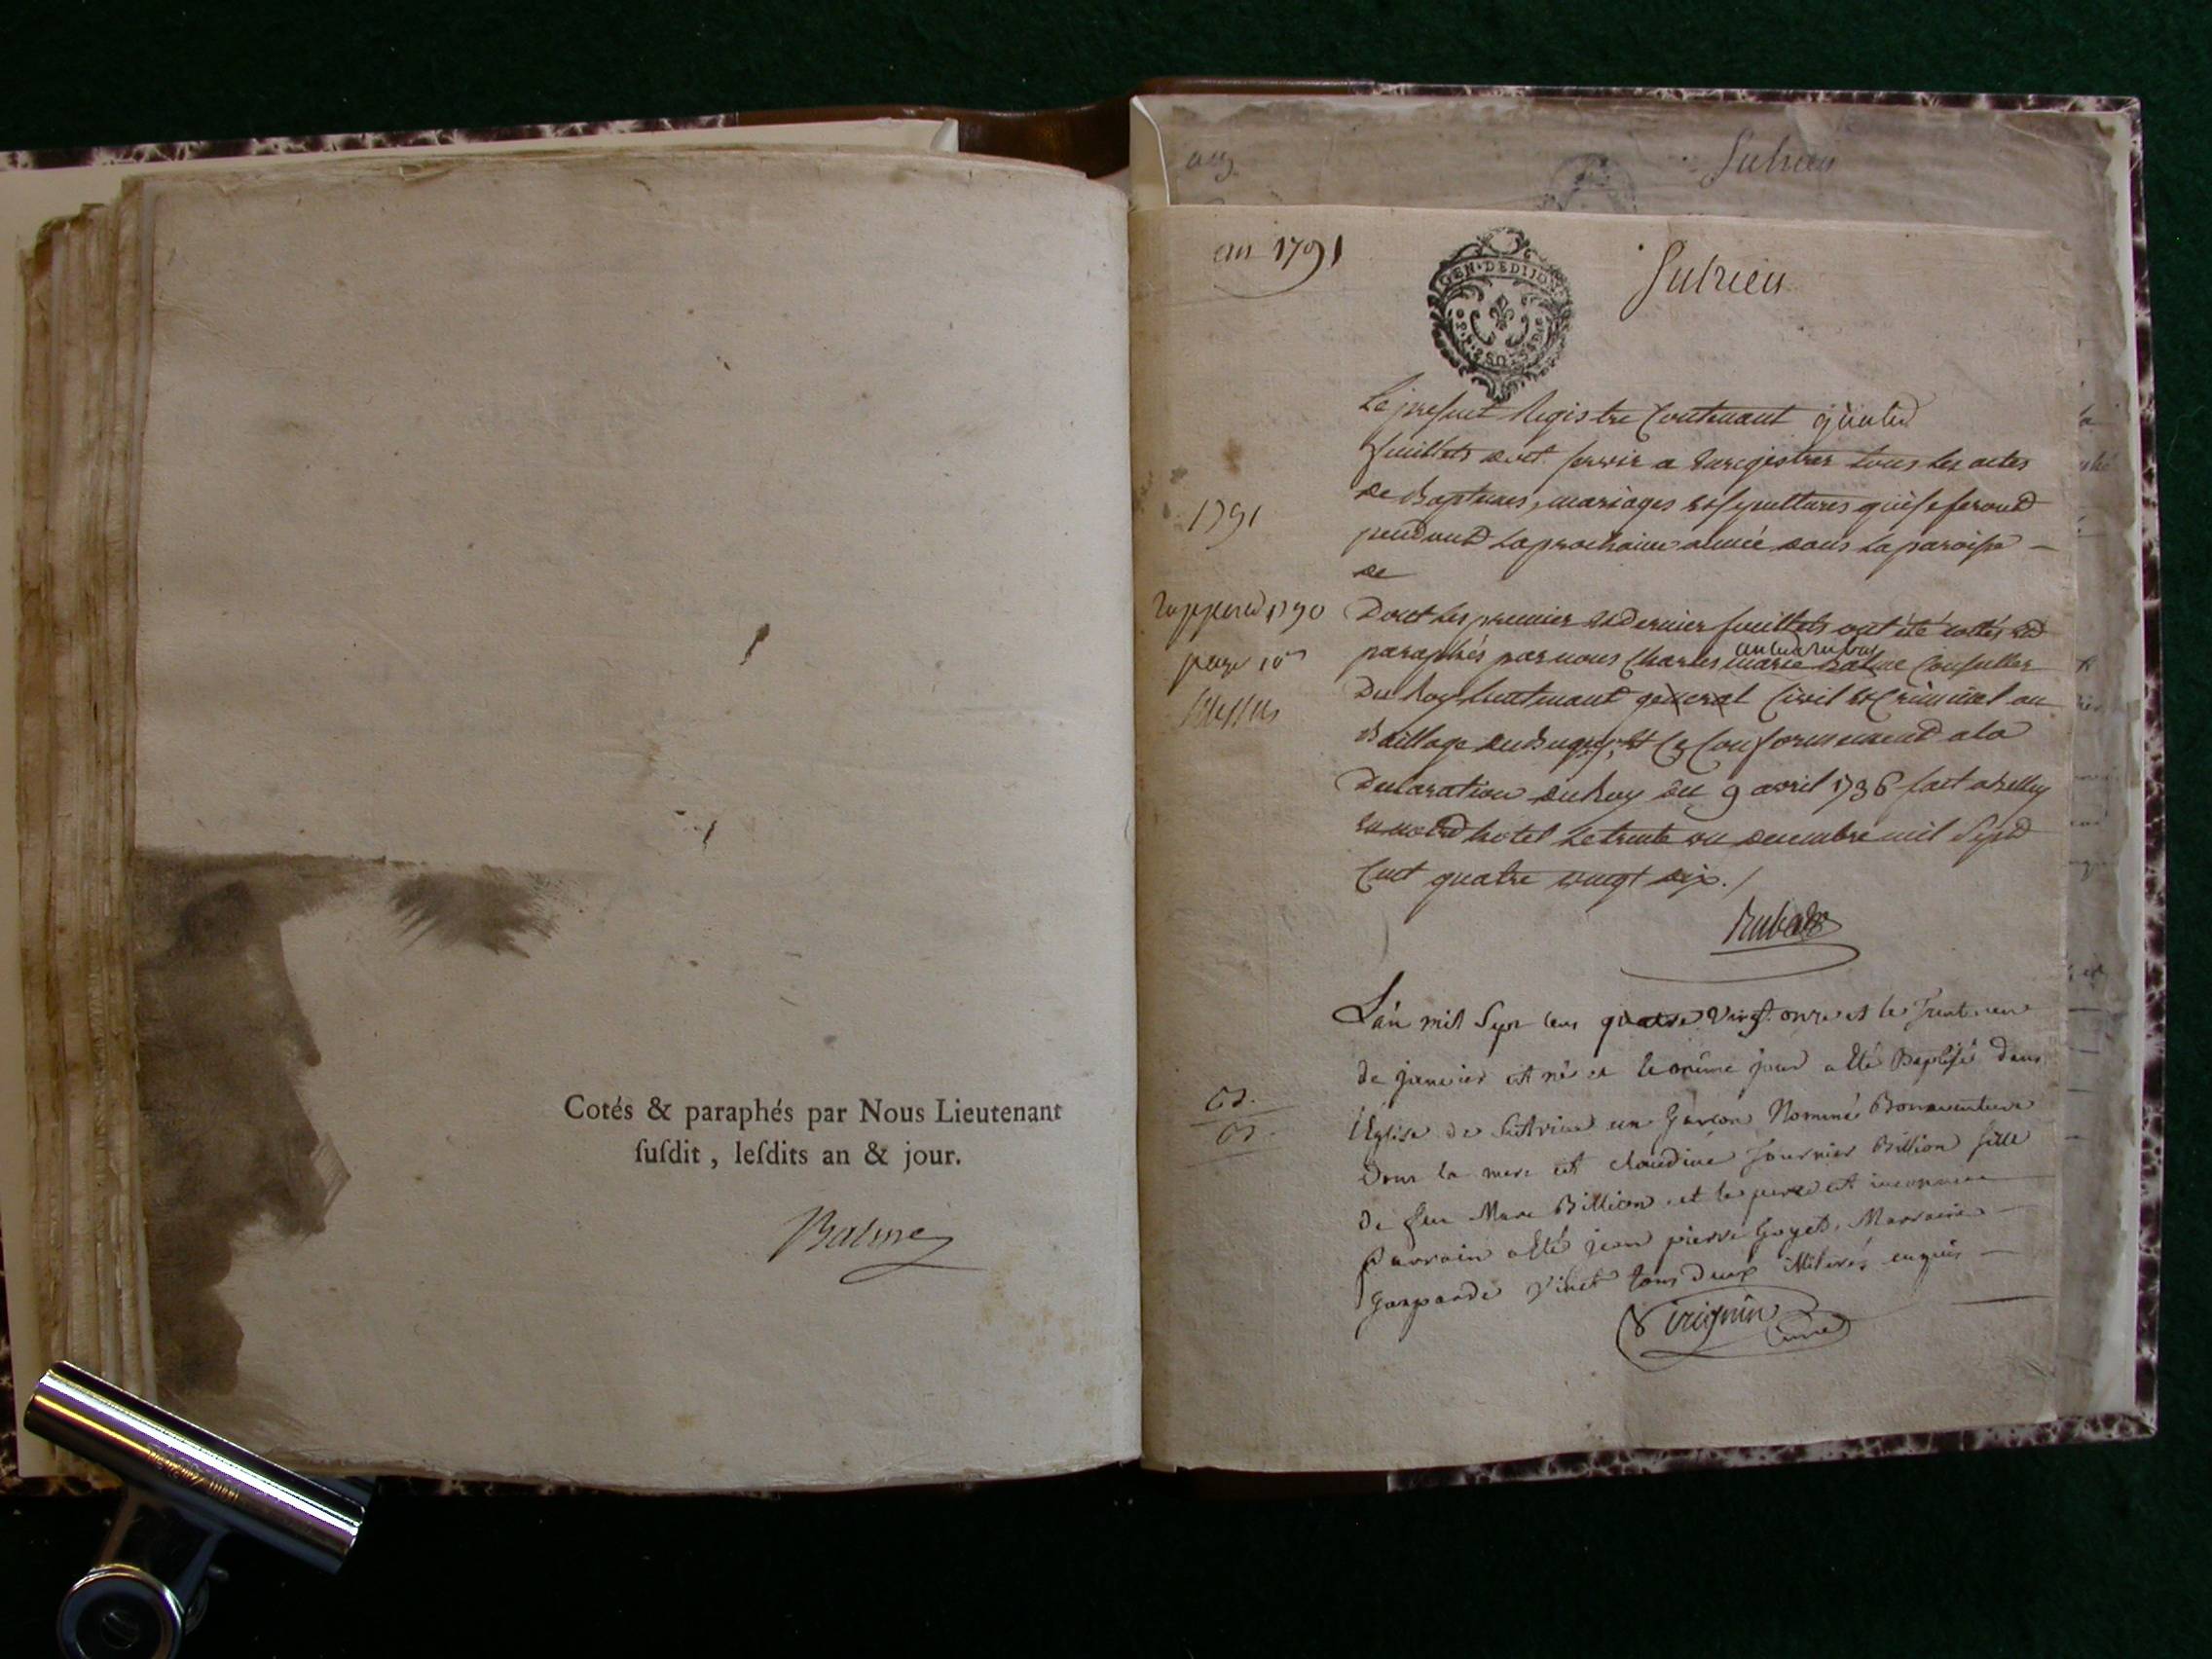 Cotés & paraphés par Nous Lieutenant
ſuſdit , leſdits an & jour.
Balme
an 1791
Sutrieu
GEN · DE DIJON
Sutrieu
Le present Registre Contenant
feuillets doit servir a Enregistrer tous les actes
de Baptemes, mariages et sepultures qui se feront
1791
pendant la prochaine année dans la paroisse —
de
1790
Dont les premier et dernier feuillets ont été cottés et
page
paraphés par nous Charles marie Balme Conseiller
Du Roy Lieutenant general Civil et Criminel au
Baillage du Bugey, et Ce Conformement a la
Declaration du Roy du 9 avril 1736 fait a Belley
en notre hotel le trente un decembre mil Sept
Cent quatre vingt dix ./
L'an mil Sept cent quatre Vingt onze et le Trente un
de janvier est né et le même jour a été Baptisé dans
l'Eglise de Sutrieu un Garcon Nommé Bonaventure
Dont la mere est claudine fournier Billion fille
de feu Marc Billion et le pere est inconnu
Parrain a été jean pierre Goyet, Marraine —
Gasparde Vinet tous deux illiterés enquis —
Sirignin Curé